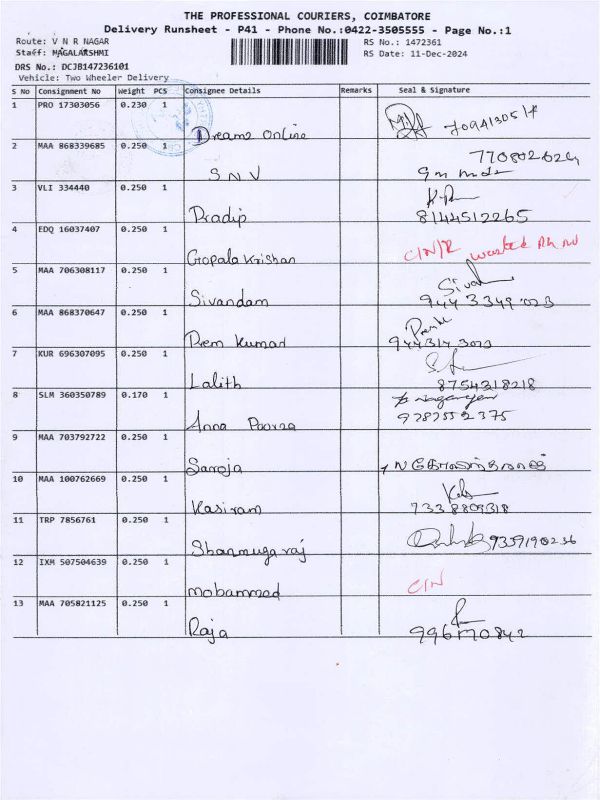 THE PROFESSIONAL COURIERS, COIMBATORE
Delivery Runsheet - P41 - Phone No.:0422-3505555 - Page No.:1
Route: V N R NAGAR
RS No.: 1472361
Staff: MAGALAKSHMI
RS Date: 11-Dec-2024
DRS No.: DCJB147236101
Vehicle: Two Wheeler Delivery
S No Consignment No Weight PCS Consignee Details Remarks Seal & Signature
1 PRO 17303056 0.230 1
Dreams Online
2 MAA 868339685 0.250 1
SNV
3 VLI 334440 0.250 1
Pradip 8144512265
4 EDQ 16037407 0.250 1
Gopala Krishan C/N/R
5 MAA 706308117 0.250 1
Sivandam
6 MAA 868370647 0.250 1
Prem Kumar
7 KUR 696307095 0.250 1
Lalith 8754318218
8 SLM 360350789 0.170 1
Anna Poorza
9 MAA 703792722 0.250 1
Saroja
10 MAA 100762669 0.250 1
Kasiram 7338809318
11 TRP 7856761 0.250 1
Shanmuga raj 9359190236
12 IXM 507504639 0.250 1
mohammad C/N
13 MAA 705821125 0.250 1
Raja